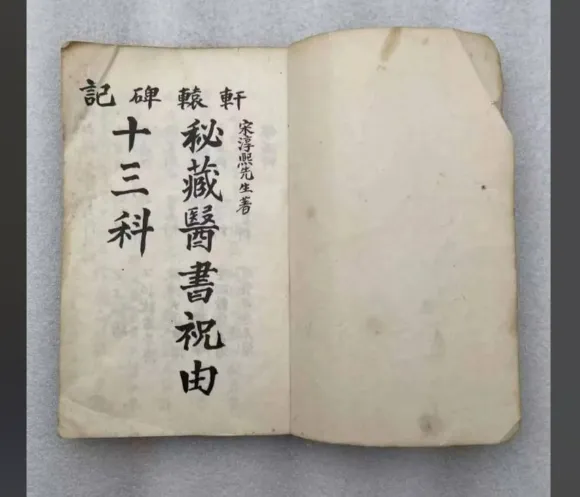 軒轅碑記
宋淳熙先生著
秘藏醫書祝由
十三科